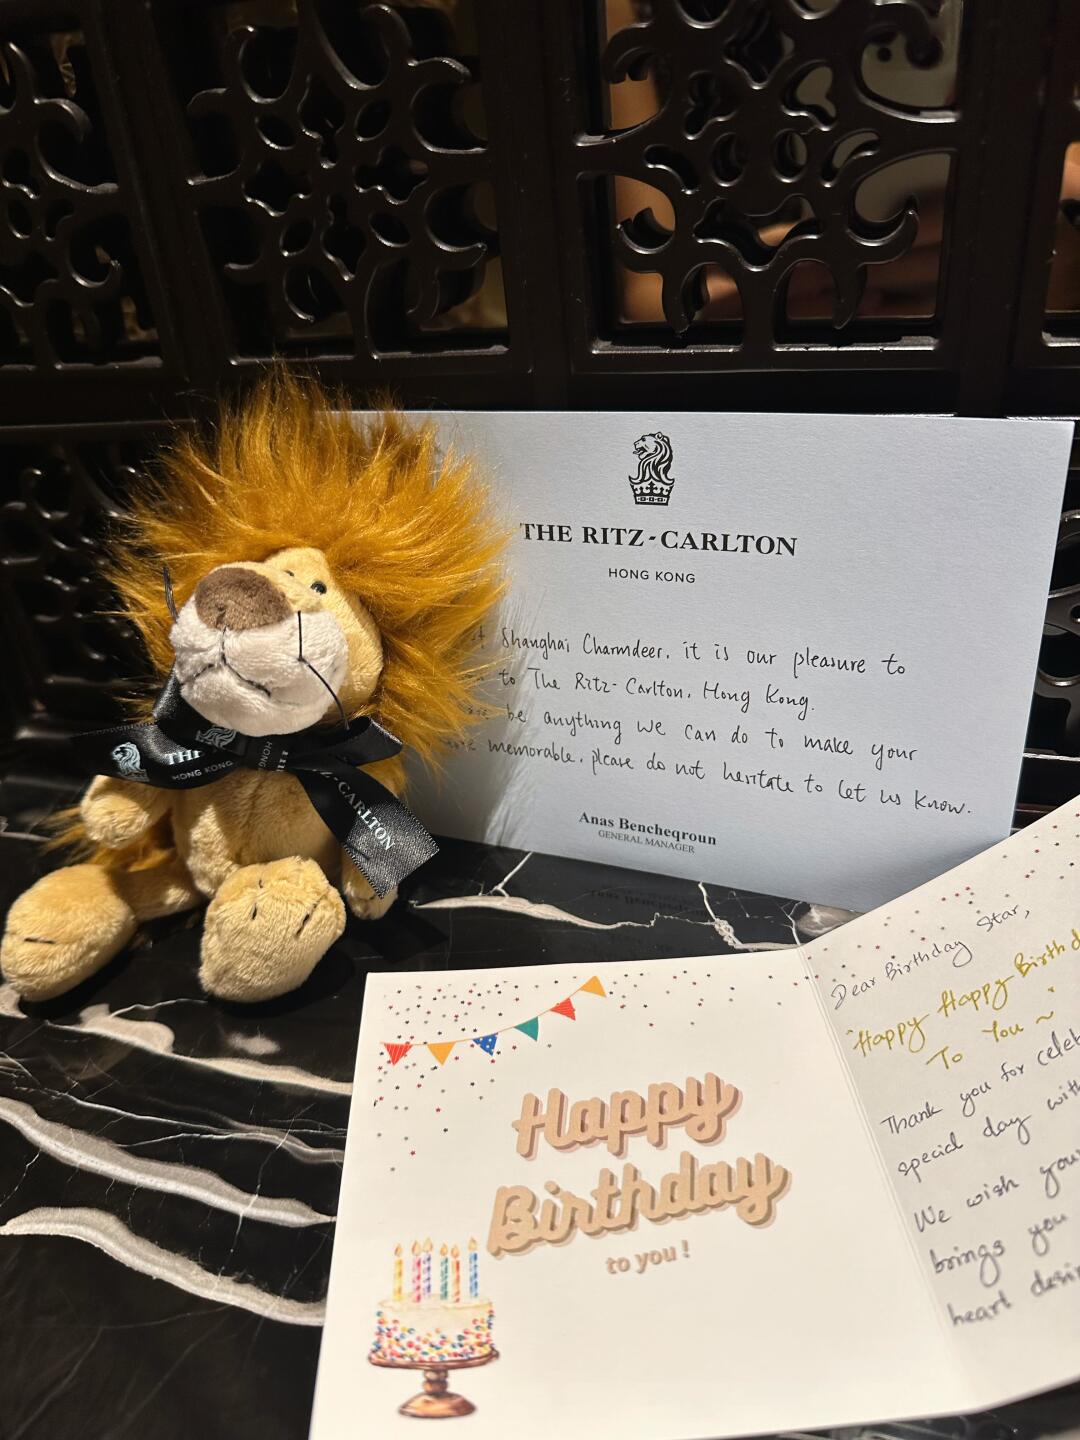 THE RITZ-CARLTON
HONG KONG
Shanghai Charmdeer, it is our pleasure to
to The Ritz-Carlton, Hong Kong.
be anything we can do to make your
memorable, please do not hesitate to let us know.
Anas Bencheqroun
GENERAL MANAGER
THE
HONG KONG
HONG
Z-CARLTON
Happy
Birthday
to you!
Dear Birthday Star,
"Happy Happy Birthd
To You ~
Thank you for celeb
special day with
We wish your
brings you
heart desir